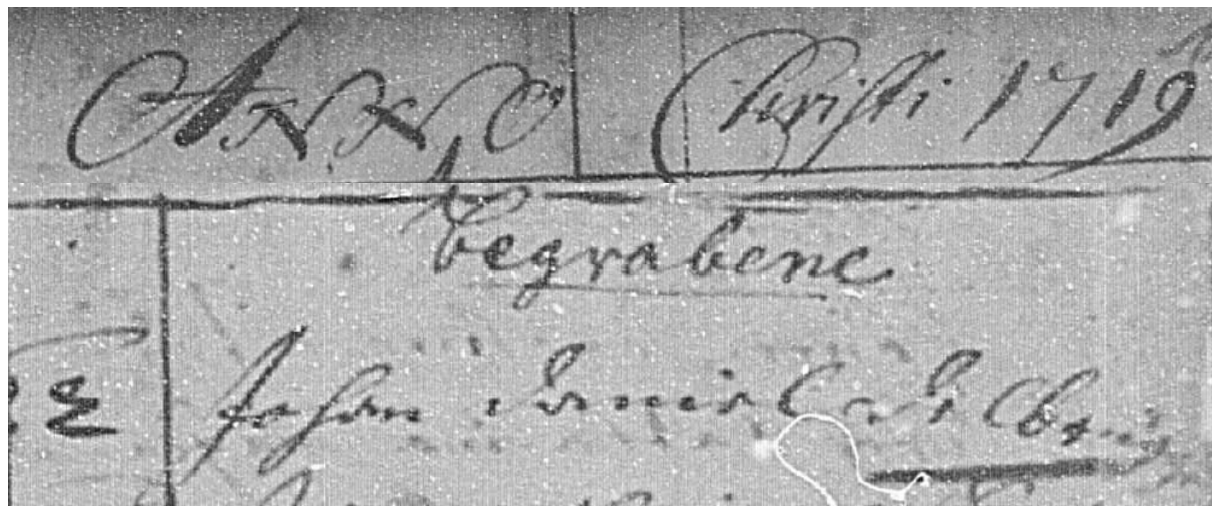 ANNO Christi 1719
Begrabene
Johan Daniel